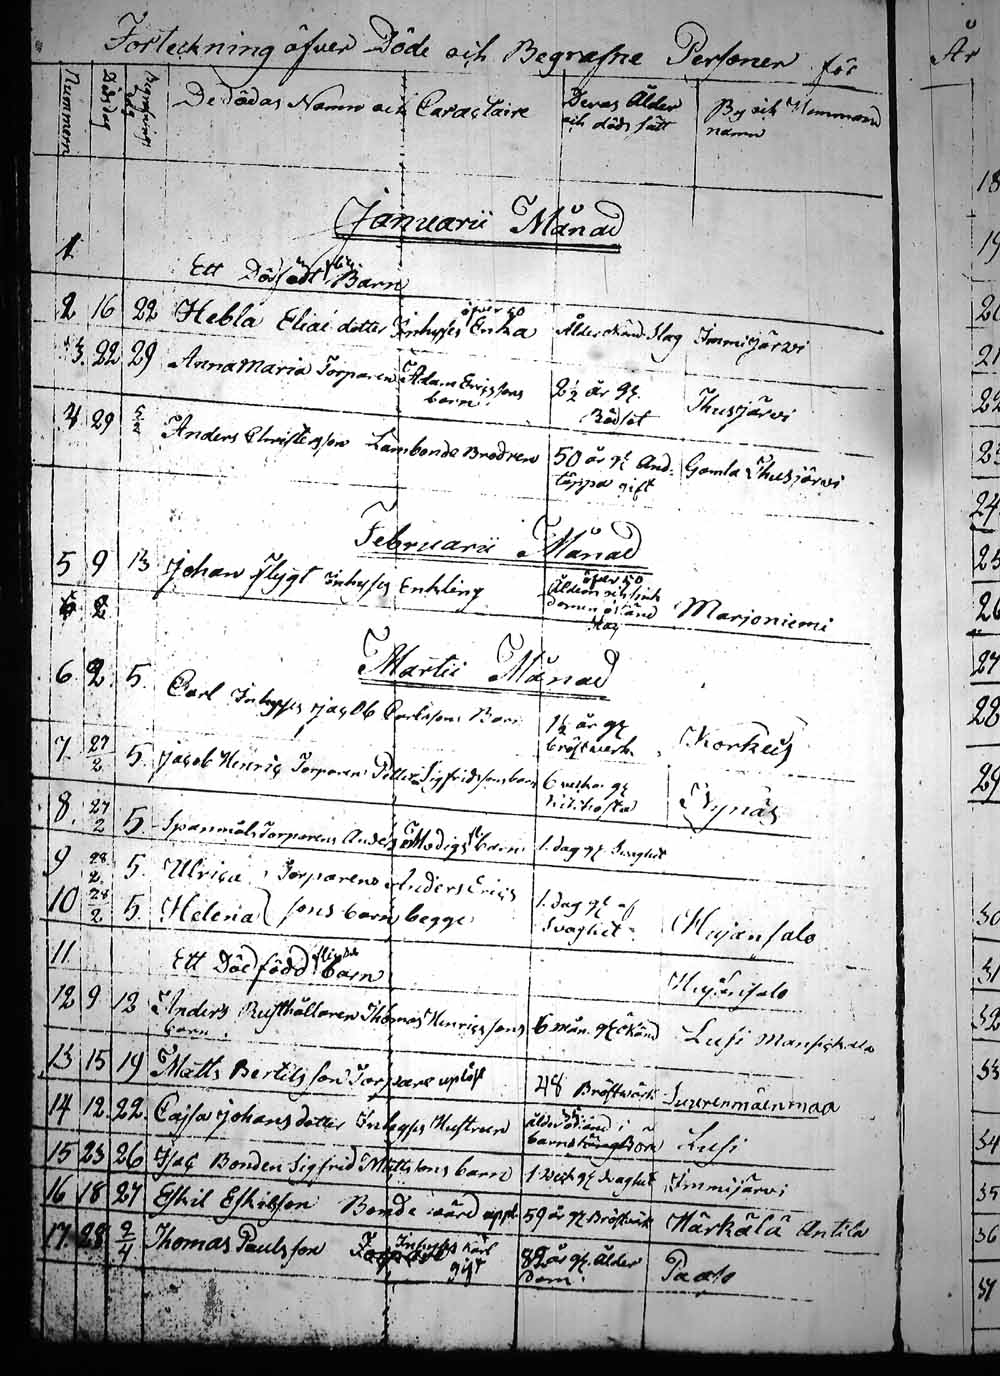 Förteckning öfver Döde och Begrafne Personer för
År
Nummern
Döds dag
Begrafnings dag
De dödas Namn och Caractaire
Deras Ålder och döds sätt
By och Hemmans namn
Januarii Månad
1
Ett Dödfödt Barn
2 16 22 Hebla Eliæ dotter Inhyses Enka öfver 50 Ålder okänd Slag Immijärvi
3 22 29 Anna Maria Torparen Adam Ericssons barn 2½ år gl. Rödsot Ihusjärvi
4 29 Anders Christersson Landbonde Brodren 50 år gl And-täppa gift Gamla Ihusjärvi
Februarii Månad
5 9 13 Johan Flygt Inhyses Enkling öfver 50 Ålderen Slag Marjoniemi
6 2
Martii Månad
6. 2. 5. Carl Inhyses Jacob Carlssons Barn 1½ år gl bröstverk Korkeis
7. 27/2 5. Jacob Henric Torparen Petter Sigfridssons barn 6 veckor gl kikhosta Nynäs
8. 27/2 5. Spanmåls Torparens Anders Modigs barn 1. dag gl Svaghet
9 28/2 5. Ulrica Torparens Anders Erics
10 28/2 5 Helena sons barn begge 1. dag gl af Svaghet Mujansalo
11 Ett Dödfödd barn Mujansalo
12 9 12 Anders Rusthållaren Thomas Henricssons barn 6 mån. gl okänd Lusi Manskala
13 15 19 Matts Bertilsson Torpare 48 Bröstvärk Suurenmäenmaa
14 12. 22. Cajsa Johansdotter Inhyses Hustrun ålder okänd i barnsäng Lusi
15 23 26 Isac Bonden Sigfrid Mattssons barn 1 Veck gl Svaghet Immijärvi
16 18 27 Eskil Eskilsson Bonde 59 år gl Bröstvärk Härkälä Antila
17 28 2/4 Thomas Paulsson Inhyses karl gift 82 år gl. Ålderdom. Paalo
18
19
20
21
22
23
24
25
26
27
28
29
30
31
32
33
34
35
36
37